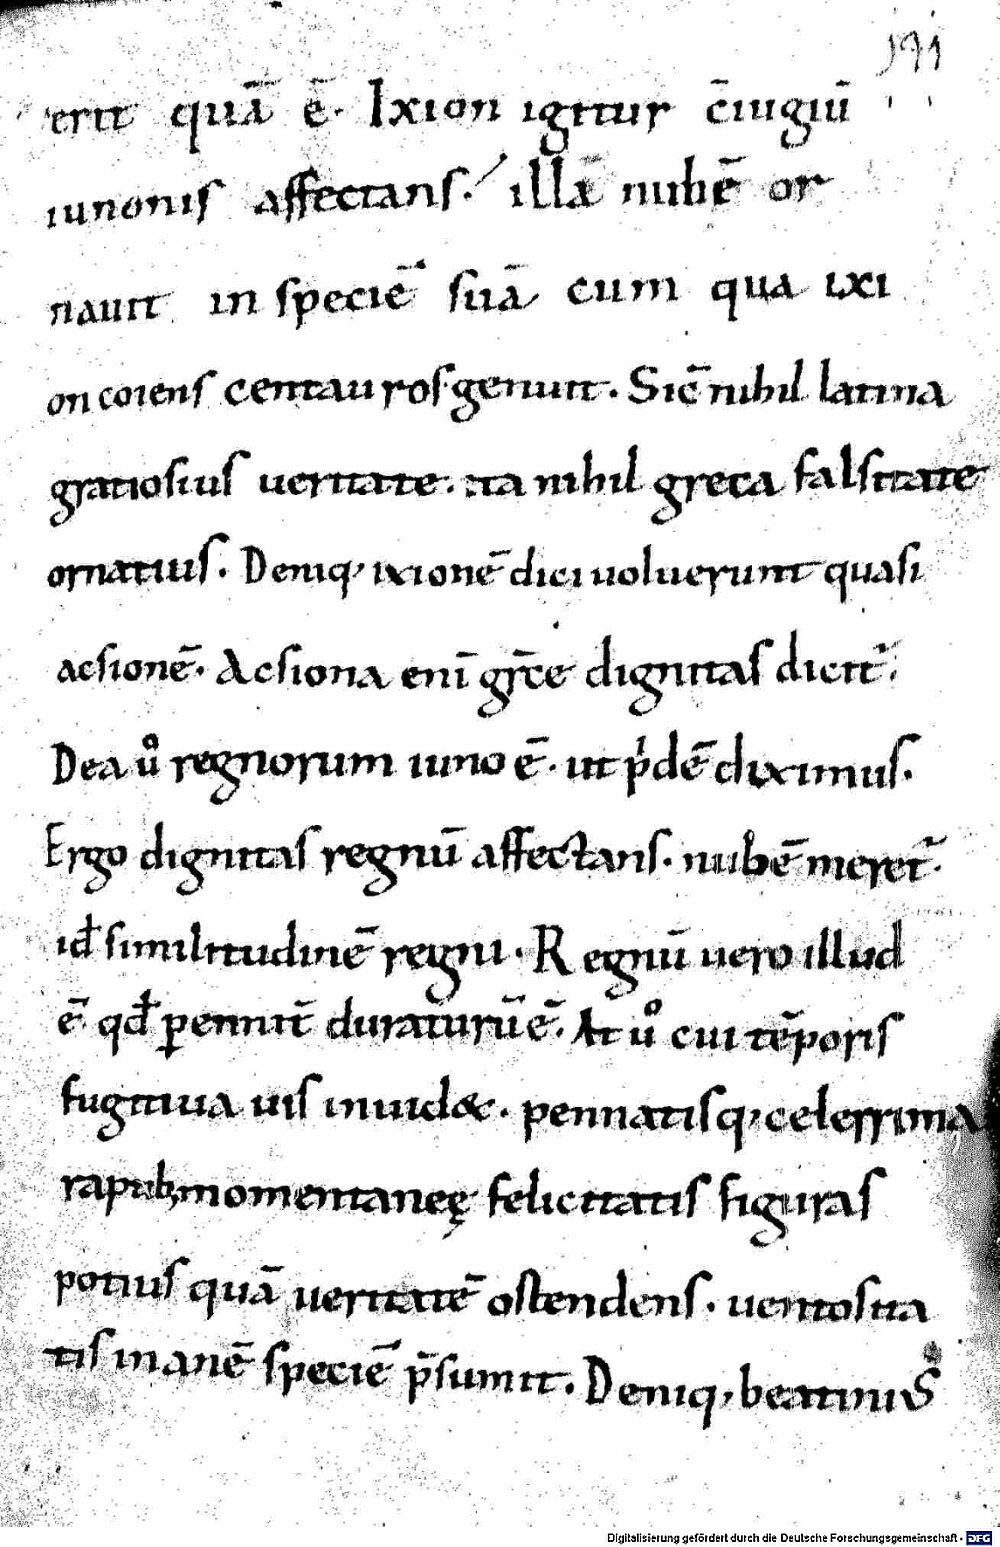 191
erit quā ē. Ixion igitur c̄iugiū
iunonis affectans. illā nubē or
nauit in speciē suā cum qua ixi
on coiens centauros genuit. Sic̄ nihil latina
gratiosius ueritate. ita nihil greca falsitate
ornatius. Deniq, ixionē dici uoluerunt quasi
acsionē. Acsiona enī gr̄ce dignitas dicit᷑.
Dea uͦ regnorum iuno ē. ut p̍dē diximus.
Ergo dignitas regnū affectans. nubē meret᷑.
id̄ similitudinē regni. Regnū vero illud
ē qd̄ pennit̄ duraturū ē. At uͦ cui tēporis
fugitiua uis inuid&. pennatisq, celerrima
rapub; momentaneę felicitatis figuras
potius quā ueritatē ostendens. uentosita
tis inanē speciē p̄sumit. Deniq, beatinus
Digitalisierung gefördert durch die Deutsche Forschungsgemeinschaft - DFG